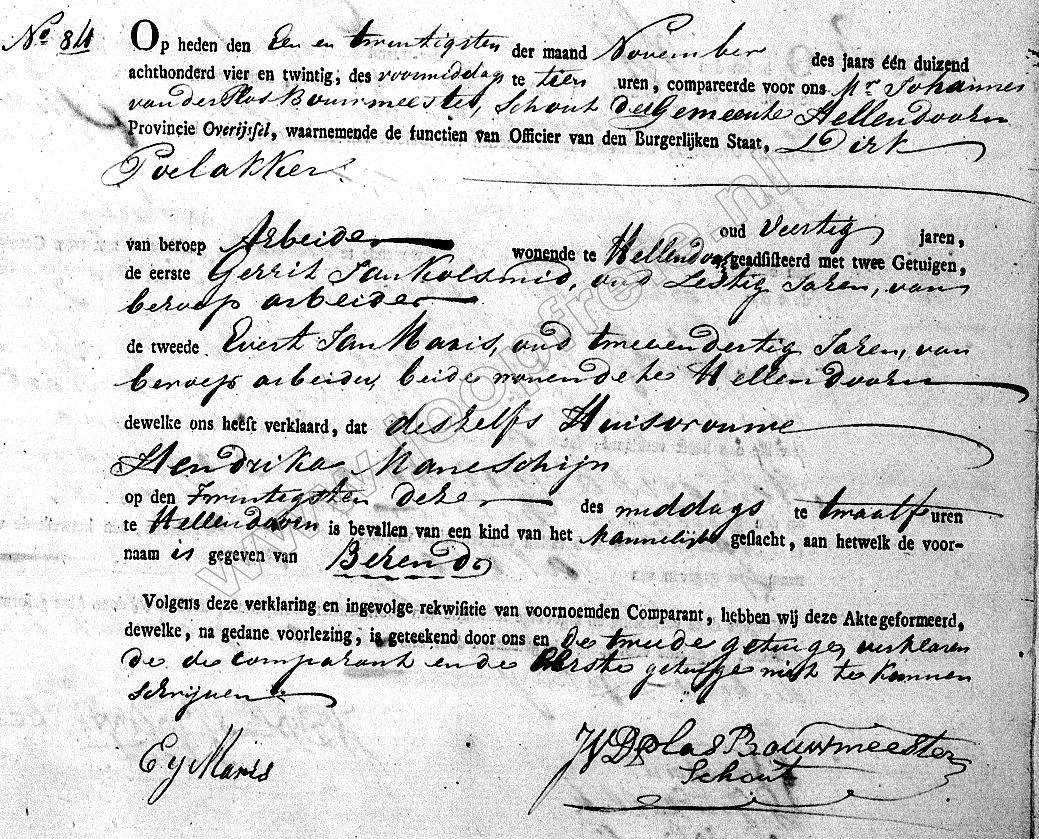 No 84
Op heden den Een en twentigsten der maand November des jaars één duizend
achthonderd vier en twintig, des voormiddags te tien uren, compareerde voor ons Mr Johannes
van der Plas Bouwmeester, Schout der Gemeente Hellendoorn
Provincie Overijssel, waarnemende de functien van Officier van den Burgerlijken Staat, Dirk
Poelakker
oud Veertig jaren,
van beroep Arbeider wonende te Hellendoorn geadsisteerd met twee Getuigen,
de eerste Gerrit Jan Kolsmid, oud Sestig Jaren, van
beroep arbeider
de tweede Evert Jan Maris, oud tweeendertig Jaren, van
beroep arbeider, beide wonende te Hellendoorn
dewelke ons heeft verklaard, dat deszelfs Huisvrouwe
Hendrika Maneschijn
op den Twentigsten dezer des middags te twaalf uren
te Hellendoorn is bevallen van een kind van het Mannelijke geslacht, aan hetwelk de voor-
naam is gegeven van Berend
Volgens deze verklaring en ingevolge rekwisitie van voornoemden Comparant, hebben wij deze Akte geformeerd,
dewelke, na gedane voorlezing, is geteekend door ons en de tweede getuige, verklaren
de de comparant en de Eerste getuige niet te kunnen
schrijven
E J Maris
JVD Plas Bouwmeester
Schout
www.voogfree.nl